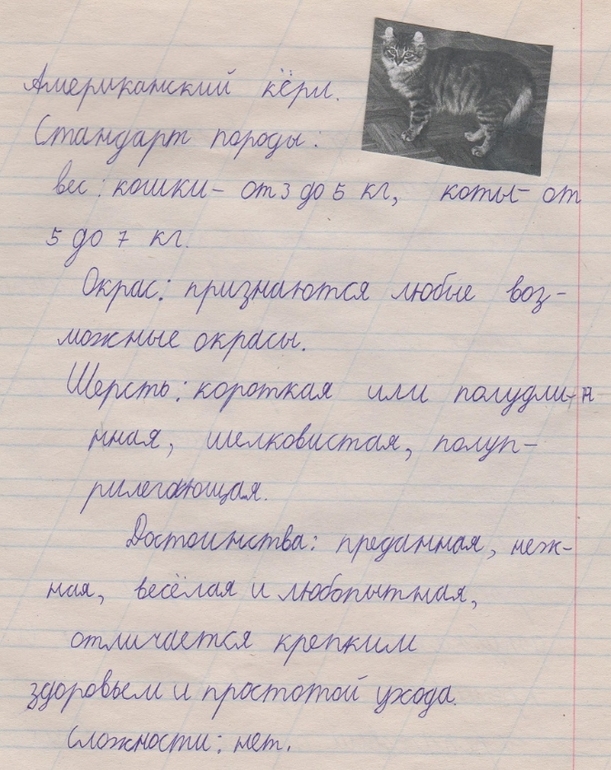 Американский кёрл.
Стандарт породы:
вес: кошки- от 3 до 5 кг, коты- от
5 до 7 кг.
Окрас: признаются любые воз-
можные окрасы.
Шерсть: короткая или полудли-н
нная, шелковистая, полуп-
рилегающая.
Достоинства: преданная, неж-
ная, весёлая и любопытная,
отличается крепким
здоровьем и простотой ухода.
Сложности: нет.